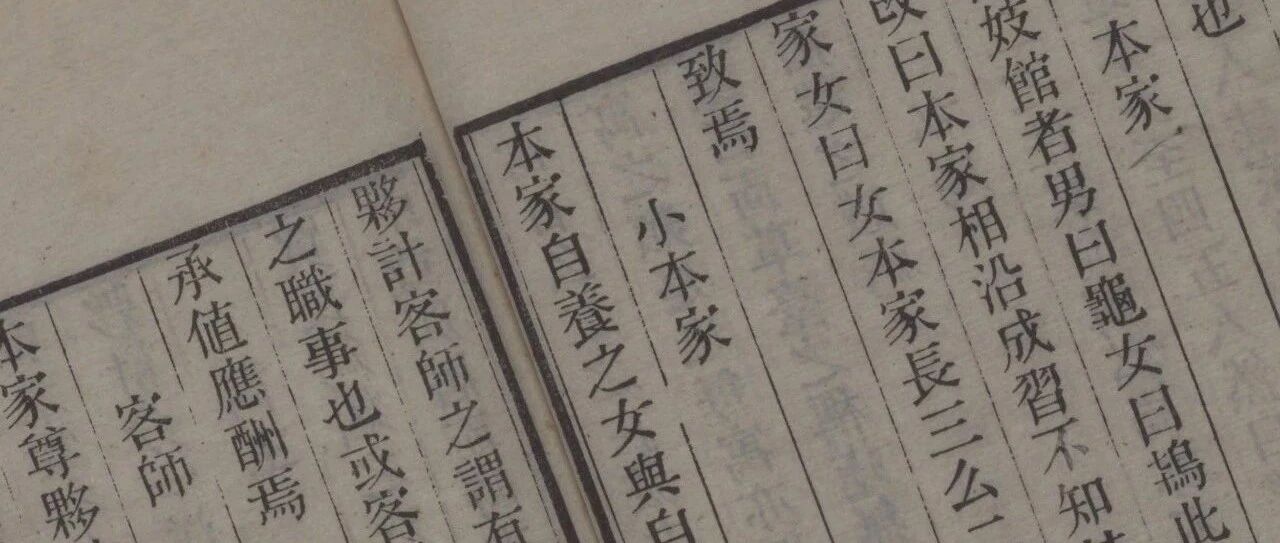 也
本家
妓館者男曰龜女曰鴇此
曰本家相沿成習不知
家女曰女本家長三么
致焉
小本家
本家自養之女與自
夥計客師之謂有
之職事也或客
承值應酬焉
客師
本家尊夥